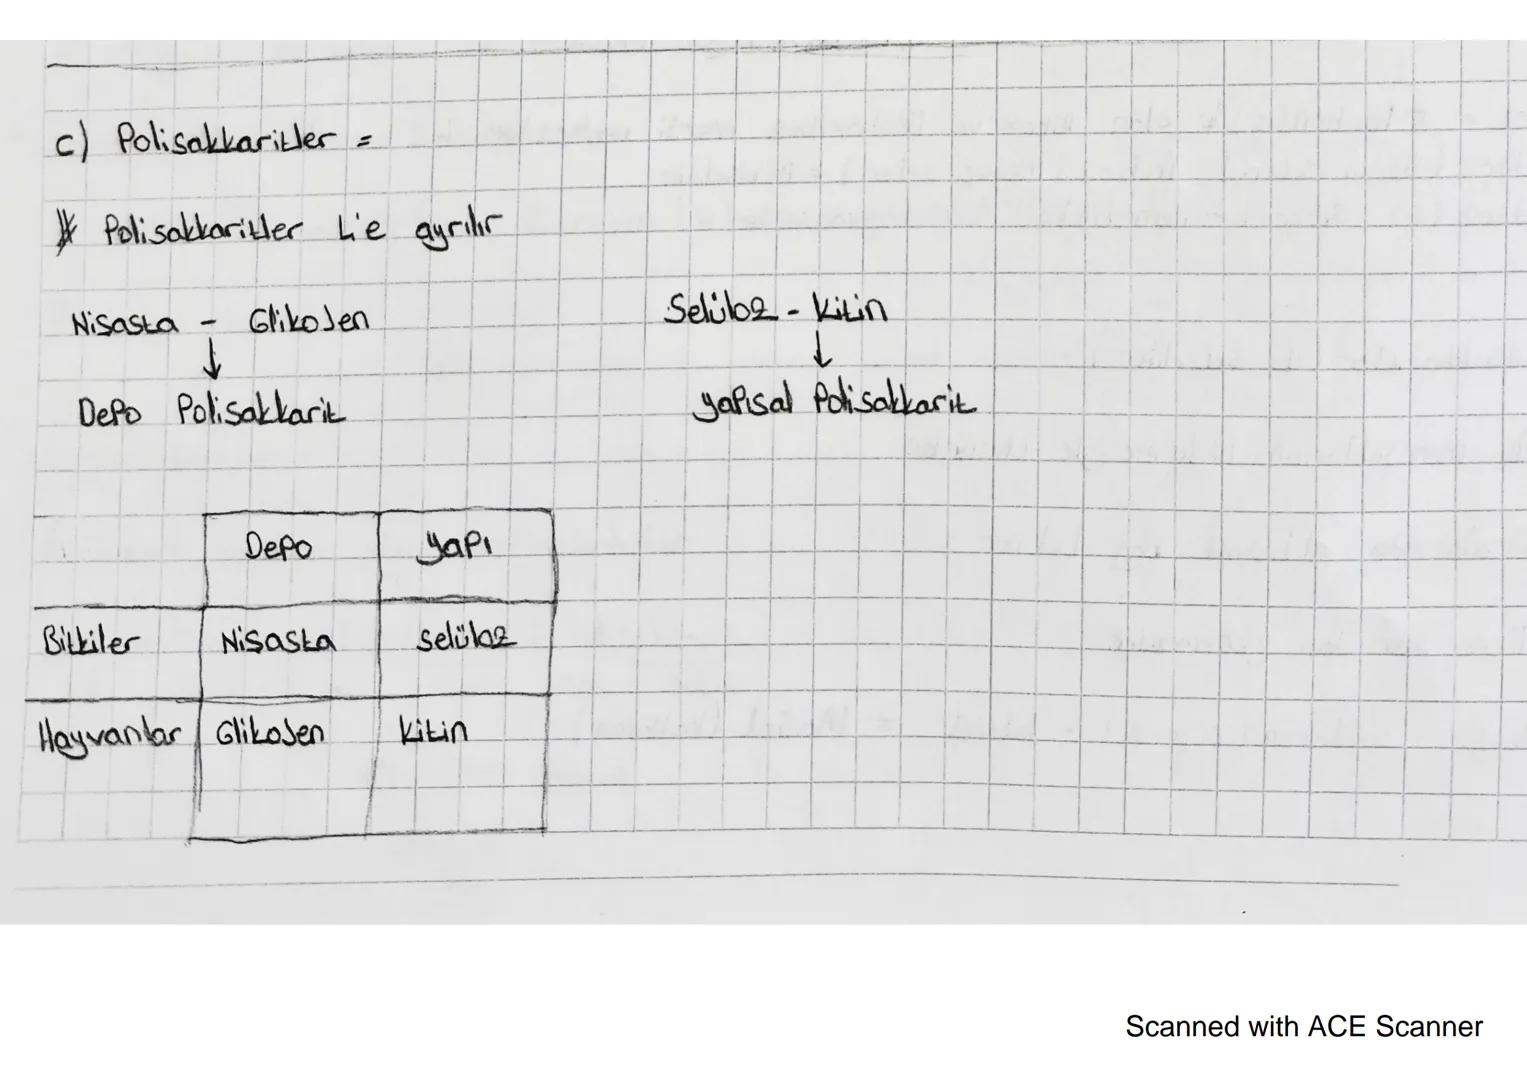 c) Polisakkaritler =
* Polisakkaritler 4'e ayrılır
Nişasta - Glikojen
Selüloz - Kitin
↓
↓
Depo Polisakkarit
yapısal Polisakkarit
Depo yapı
Bitkiler Nişasta selüloz
Hayvanlar Glikojen kitin
Scanned with ACE Scanner